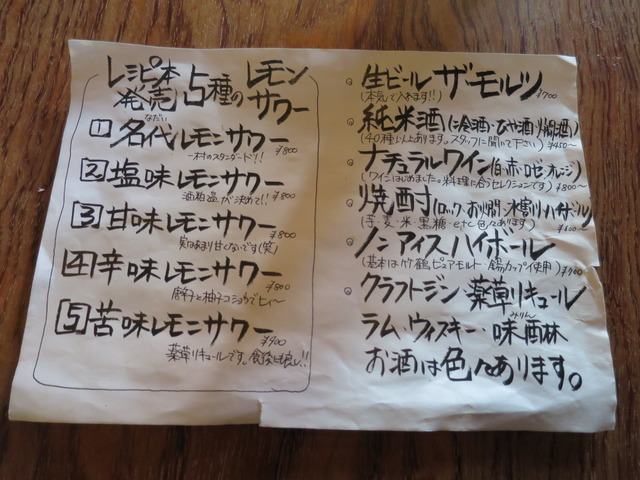 レシピ本発売 5種のレモンサワー
1 名代レモンサワー
なだい
一村のスタンダード!! ¥800
2 塩味レモンサワー
酒粕塩が決めて!! ¥800
3 甘味レモンサワー
実はあまり甘くないです(笑) ¥800
4 辛味レモンサワー
唐辛子と柚子コショウでヒィ〜 ¥800
5 苦味レモンサワー
¥900
薬草リキュールです。食後にも良し!!
生ビール ザ・モルツ
(本気で入れます!!) ¥700
純米酒(冷酒・ひや酒・燗酒)
(40種以上あります。スタッフに聞いて下さい) ¥450〜
ナチュラルワイン(白・赤・ロゼ・オレンジ)
(ワインはじめました。料理に合うセレクションです) ¥800〜
焼酎(ロック・お燗・水割り・ハイボール)
(芋・麦・米・黒糖・etc 色々あります) ¥600〜
ノンアイスハイボール
(基本は竹鶴ピュアモルト・錫カップ使用) ¥900
クラフトジン・薬草リキュール
ラム・ウィスキー・味醂
みりん
お酒は色々あります。